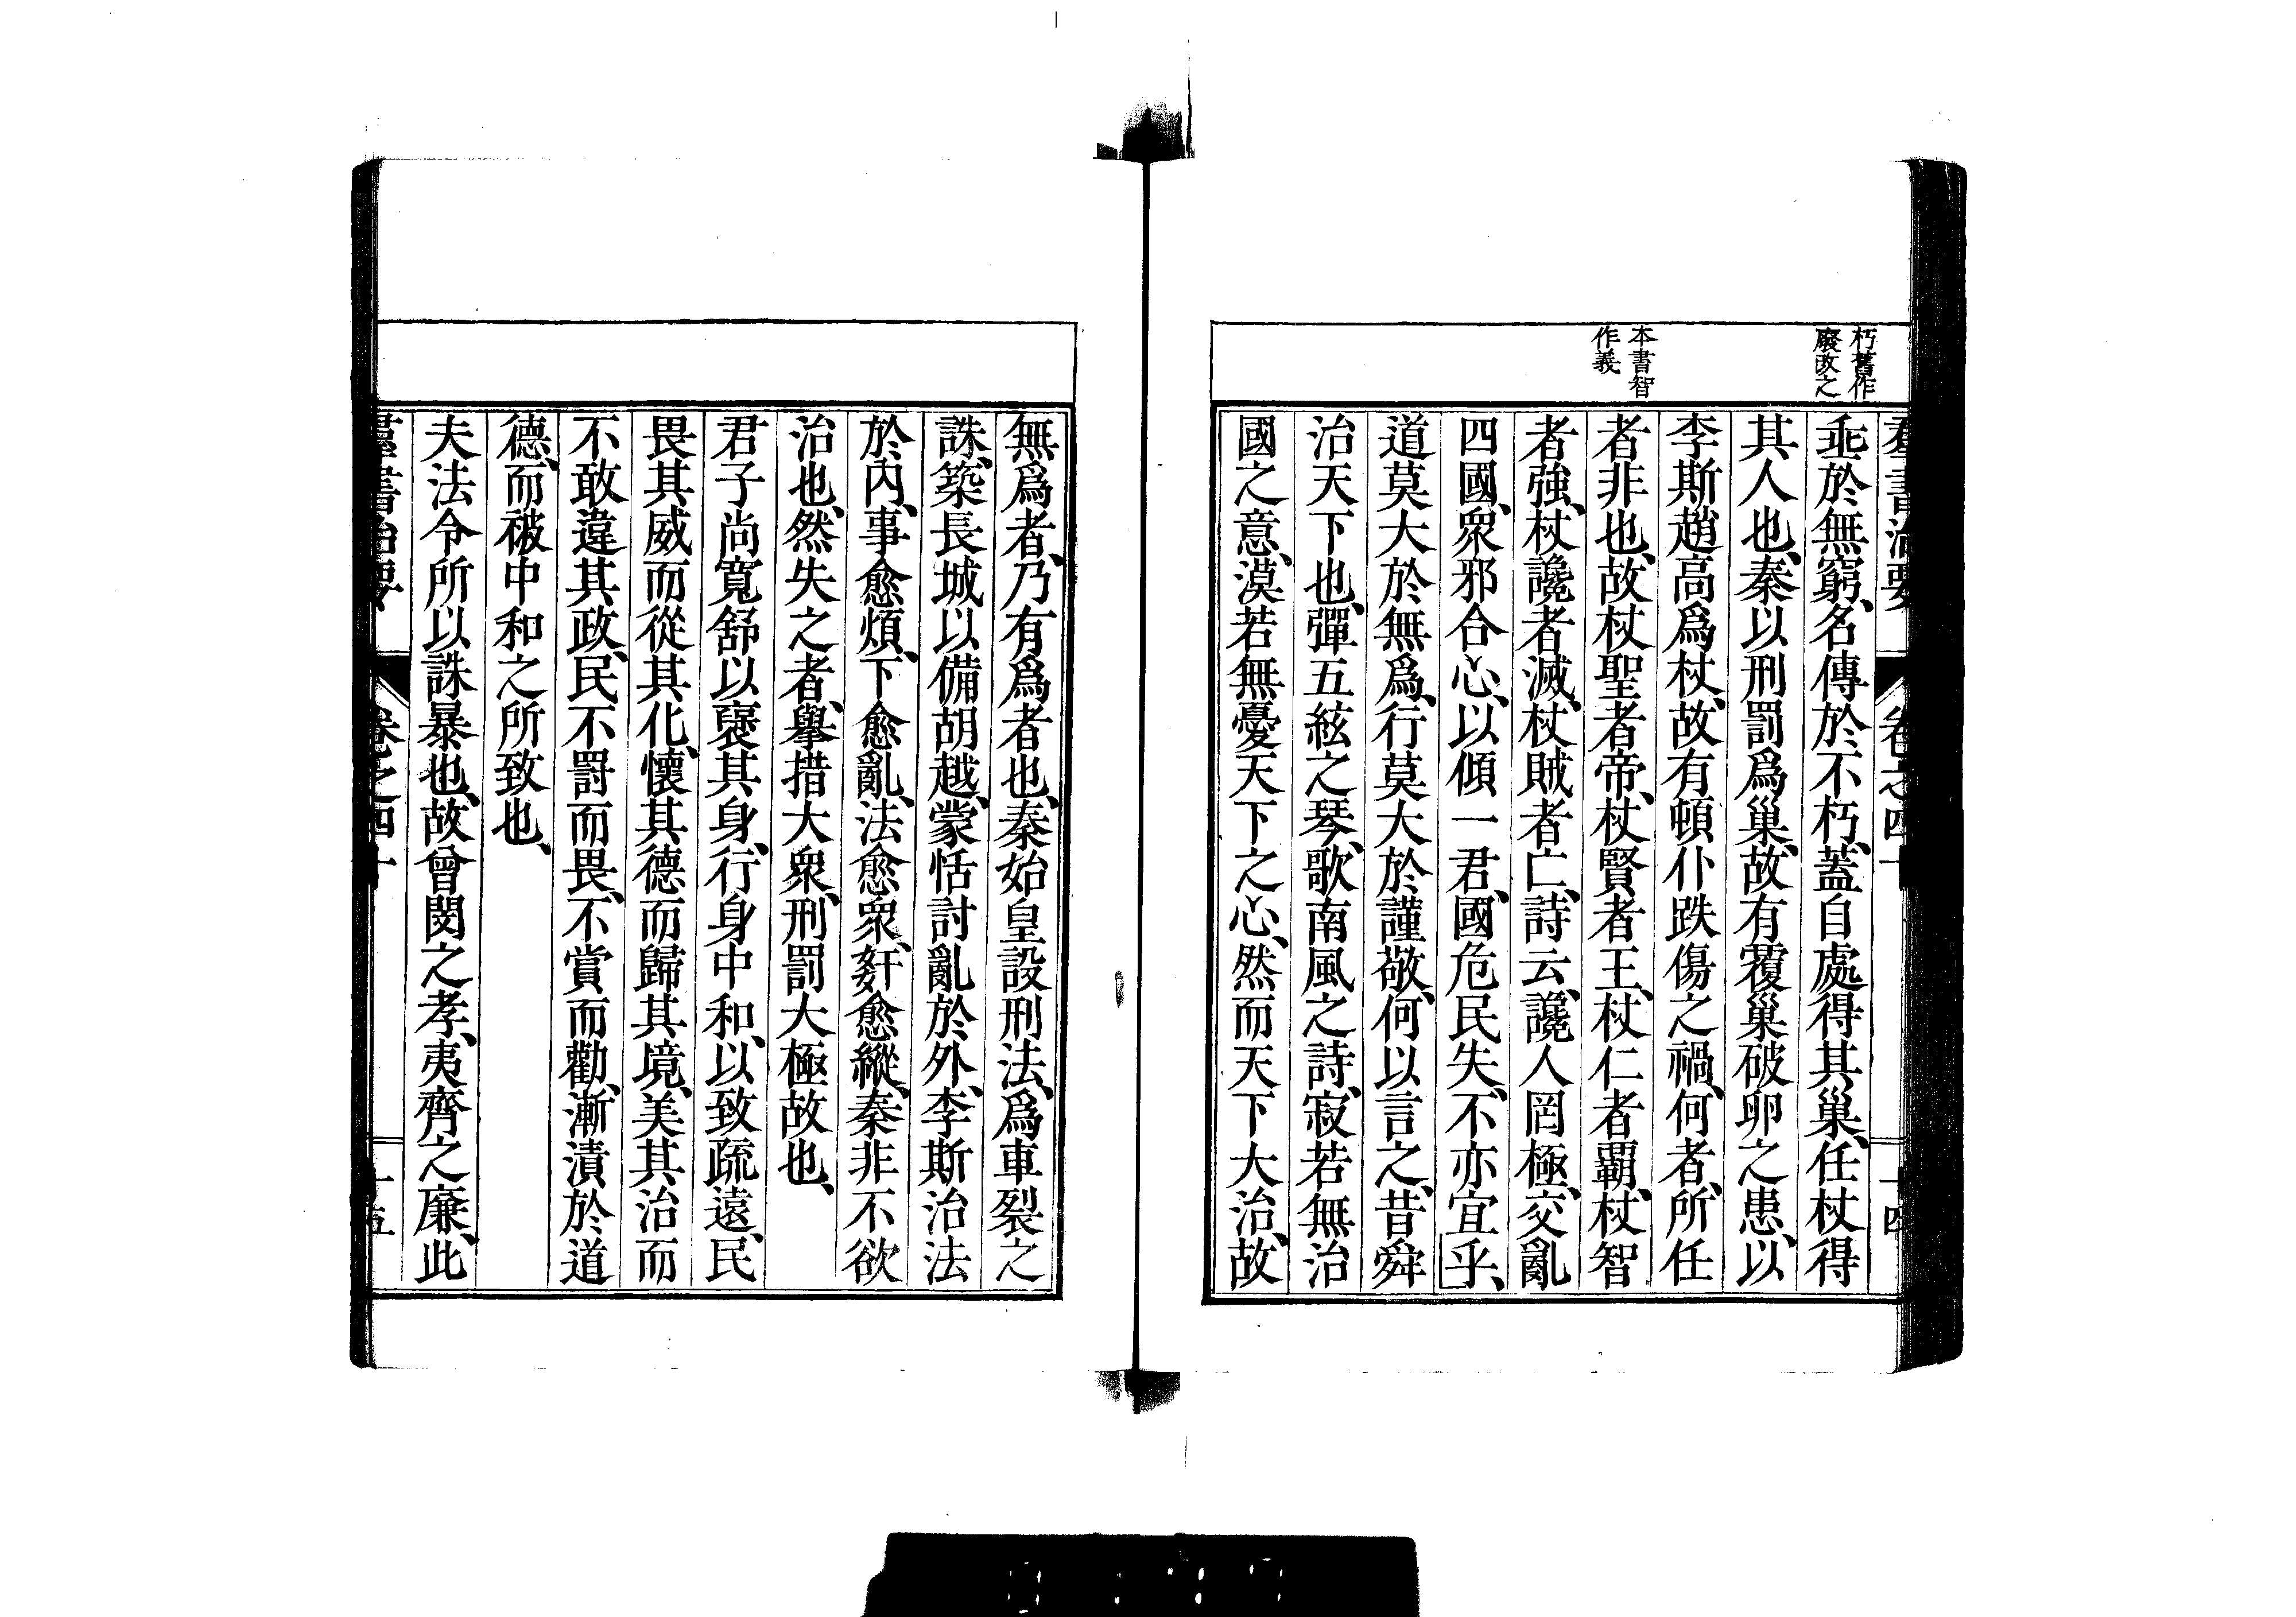 朽舊作
廢改之
本書智
作義
羣書治要 卷之四十 十四
乖於無窮、名傳於不朽、蓋自處得其巢、任杖得
其人也、秦以刑罰爲巢、故有覆巢破卵之患、以
李斯趙高爲杖、故有頓仆跌傷之禍、何者、所任
者非也、故杖聖者帝、杖賢者王、杖仁者覇、杖智
者強、杖讒者滅、杖賊者亡、詩云、讒人罔極、交亂
四國、衆邪合心、以傾一君、國危民失、不亦宜乎、
道莫大於無爲、行莫大於謹敬、何以言之、昔舜
治天下也、彈五絃之琴、歌南風之詩、寂若無治
國之意、漠若無憂天下之心、然而天下大治、故
無爲者、乃有爲者也、秦始皇設刑法、爲車裂之
誅、築長城以備胡越、蒙恬討亂於外、李斯治法
於內、事愈煩、下愈亂、法愈衆、姧愈縱、秦非不欲
治也、然失之者、擧措大衆、刑罰大極故也、
君子尚寬舒以襃其身、行身中和、以致疏遠、民
畏其威而從其化、懷其德而歸其境、美其治而
不敢違其政、民不罸而畏、不賞而勸、漸漬於道
德、而被中和之所致也、
夫法令所以誅暴也、故曾閔之孝、夷齊之廉、此
羣書治要 卷之四十 十五